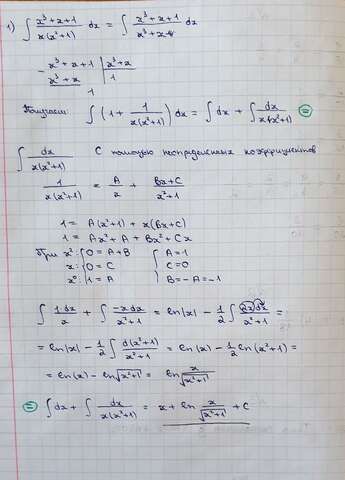 1) ∫ (x³+x+1)/(x(x²+1)) dx = ∫ (x³+x+1)/(x³+x) dx
− x³+x+1 | x³+x
x³+x | 1
1
Получаем: ∫ (1 + 1/(x(x²+1))) dx = ∫ dx + ∫ dx/(x(x²+1)) =
∫ dx/(x(x²+1)) С помощью неопределенных коэффициентов
1/(x(x²+1)) = A/x + (Bx+C)/(x²+1)
1 = A(x²+1) + x(Bx+C)
1 = Ax² + A + Bx² + Cx
При x²: { 0 = A+B { A=1
x: { 0 = C { C=0
x⁰: { 1 = A { B=-A=-1
∫ 1dx/x + ∫ -xdx/(x²+1) = ln|x| - 1/2 ∫ 2xdx/(x²+1) =
= ln|x| - 1/2 ∫ d(x²+1)/(x²+1) = ln(x) - 1/2 ln(x²+1) =
= ln(x) - ln√(x²+1) = ln x/√(x²+1)
= ∫ dx + ∫ dx/(x(x²+1)) = x + ln x/√(x²+1) + C